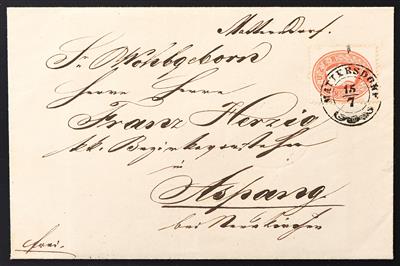 Mattersdorf.
Sr Wohlgeborn
Herrn Herrn
MATTERSDORF
15/7
Franz Herzig
k.k. Bezirksvorsteher
in
Aspang
bei Neunkirchen
frei.